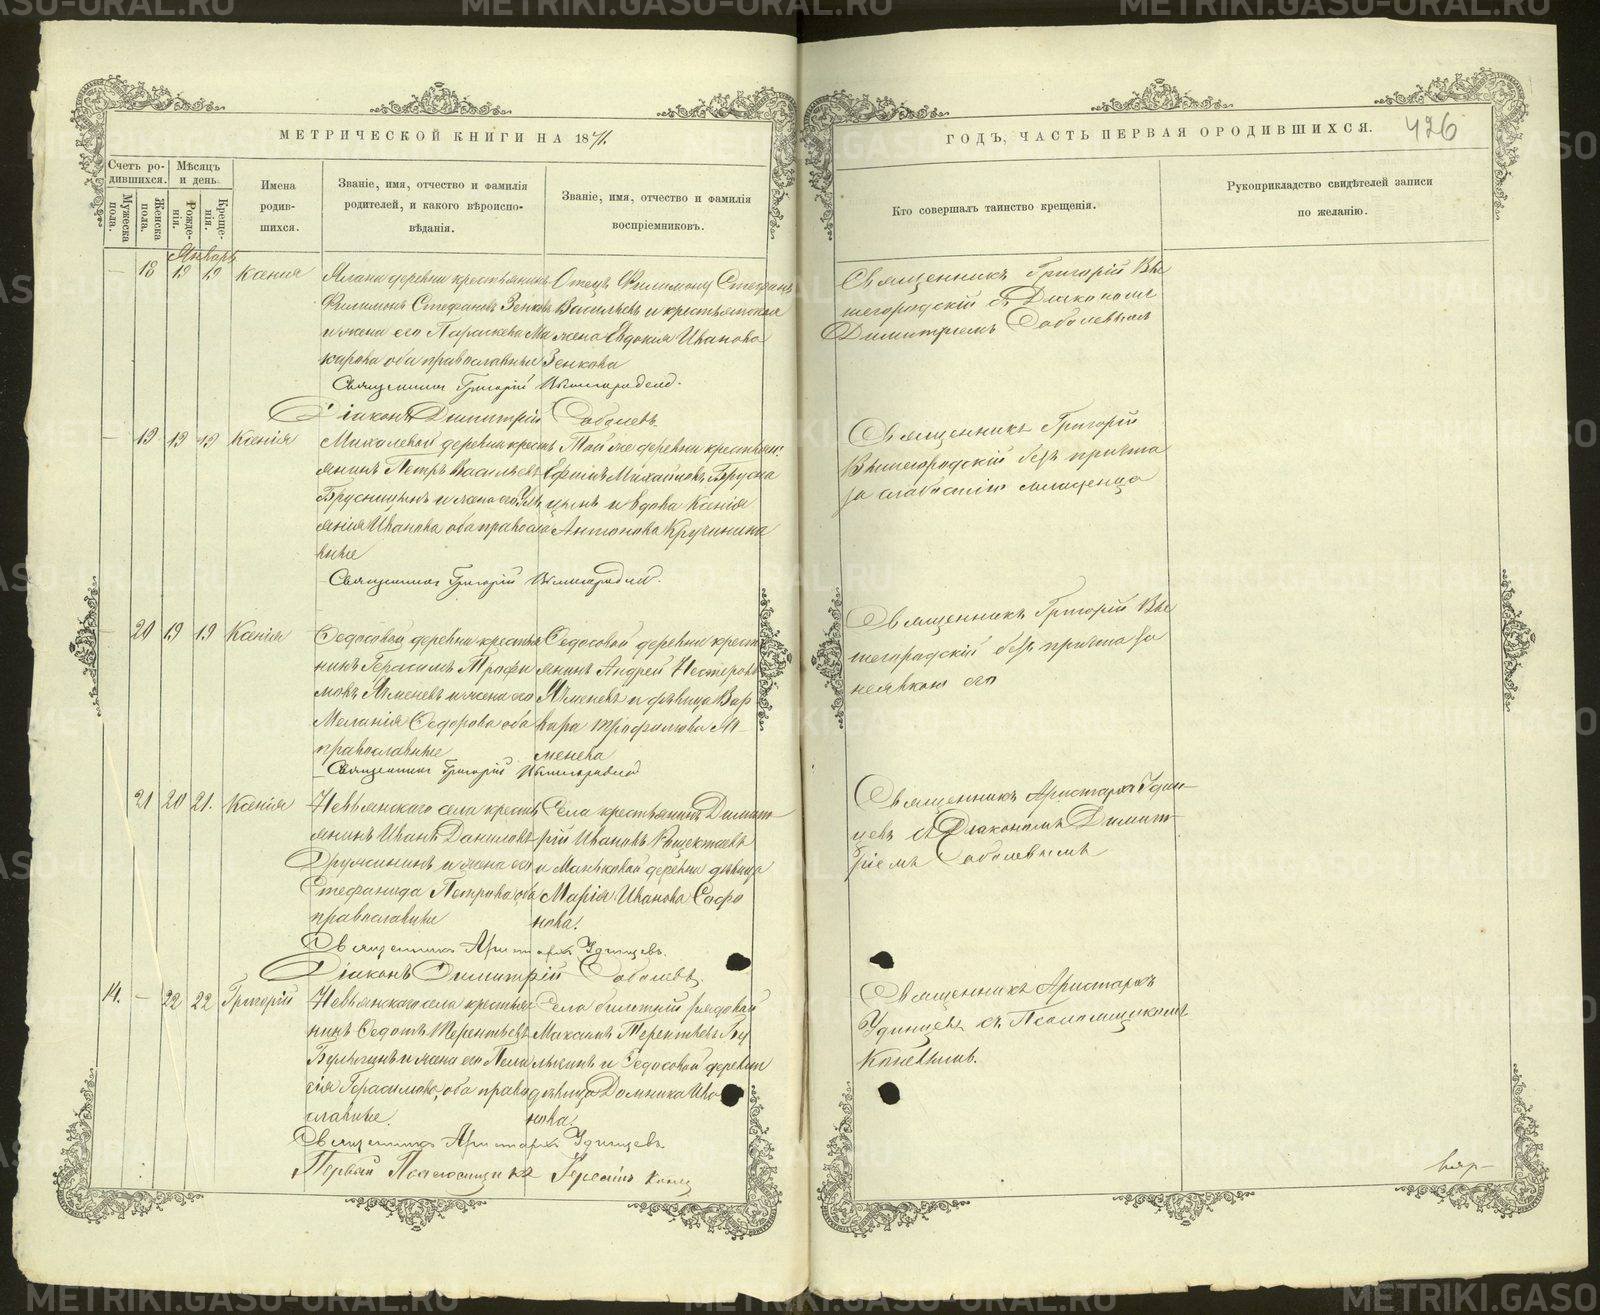 МЕТРИЧЕСКОЙ КНИГИ НА 1871.
ГОДЪ, ЧАСТЬ ПЕРВАЯ ОРОДИВШИХСЯ. 426
Счетъ ро-
дившихся.
Мужеска
пола.
Женска
пола.
Мѣсяцъ
и день
Рожде-
нія.
Креще-
нія.
Имена
родив-
шихся.
Званіе, имя, отчество и фамилія
родителей, и какого вѣроиспо-
вѣданія.
Званіе, имя, отчество и фамилія
воспріемниковъ.
Кто совершалъ таинство крещенія.
Рукоприкладство свидѣтелей записи
по желанію.
Январь
— 18 19 19 Ксенія
деревни крестьянинъ
Филимонъ Стефановъ Зенковъ
и жена его Параскева Ма
карова оба православные
Отецъ Филимону Стефанъ
Васильевъ и крестьянская
жена Евдокия Иванова
Зенкова
Священникъ Григорій Вышегородскій
Діаконъ Димитрій Соболевъ
Священникъ Григорій Вы
шегородскій съ Діакономъ
Димитріемъ Соболевымъ
— 19 19 19 Ксенія
Михалевой деревни кресть
янинъ Петръ Васильевъ
Брусницынъ и жена его Уль
янія Иванова оба правосла
вные
Той же деревни крестьян:
Ефимъ Михайловъ Брусни
цынъ и вдова Ксенія
Антонова Кручинина
Священникъ Григорій Вышегородскій
Священникъ Григорій
Вышегородскій безъ причта
за слабостію младенца
— 20 19 19 Ксенія
Ѳедосовой деревни крестья
нинъ Герасимъ Трофи
мовъ Ячменевъ и жена его
Меланія Ѳедорова оба
православные
Ѳедосовой деревни кресть
янинъ Андрей Нестеровъ
Ячменевъ и дѣвица Вар
вара Трофимова Яч
менева
Священникъ Григорій Вышегородскій
Священникъ Григорій Вы
шегородскій безъ причта за
неявкою его
21 20 21. Ксенія
Невьянскаго села кресть
янинъ Иванъ Даниловъ
Дружининъ и жена его
Стефанида Петрова, оба
православные
Села крестьянинъ Димит
рій Ивановъ
и Маньковой деревни дѣвица
Марія Иванова Сафо
нова.
Священникъ Аристархъ Удинцевъ
Діаконъ Димитрій Соболевъ
Священникъ Аристархъ Удин-
цевъ съ Діакономъ Димит-
ріемъ Соболевымъ
14. — 22 22 Григорій
Невьянскаго села крестья
нинъ Ѳедотъ Терентьевъ
Булыгинъ и жена его Пела
гія Герасимова, оба право
славные.
Села билетный рядовой
Максимъ Терентьевъ Бу
лыгинъ и Ѳедосовой деревни
дѣвица Домника Ива
нова.
Священникъ Аристархъ Удинцевъ
Первый Псаломщикъ
Священникъ Аристархъ
Удинцевъ съ Псаломщикомъ
METRIKI.GASO-URAL.RU